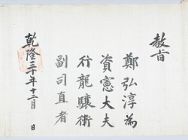 教旨
鄭弘淳為
資憲大夫
行龍驤衛
副司直者
乾隆三十年十二月 日